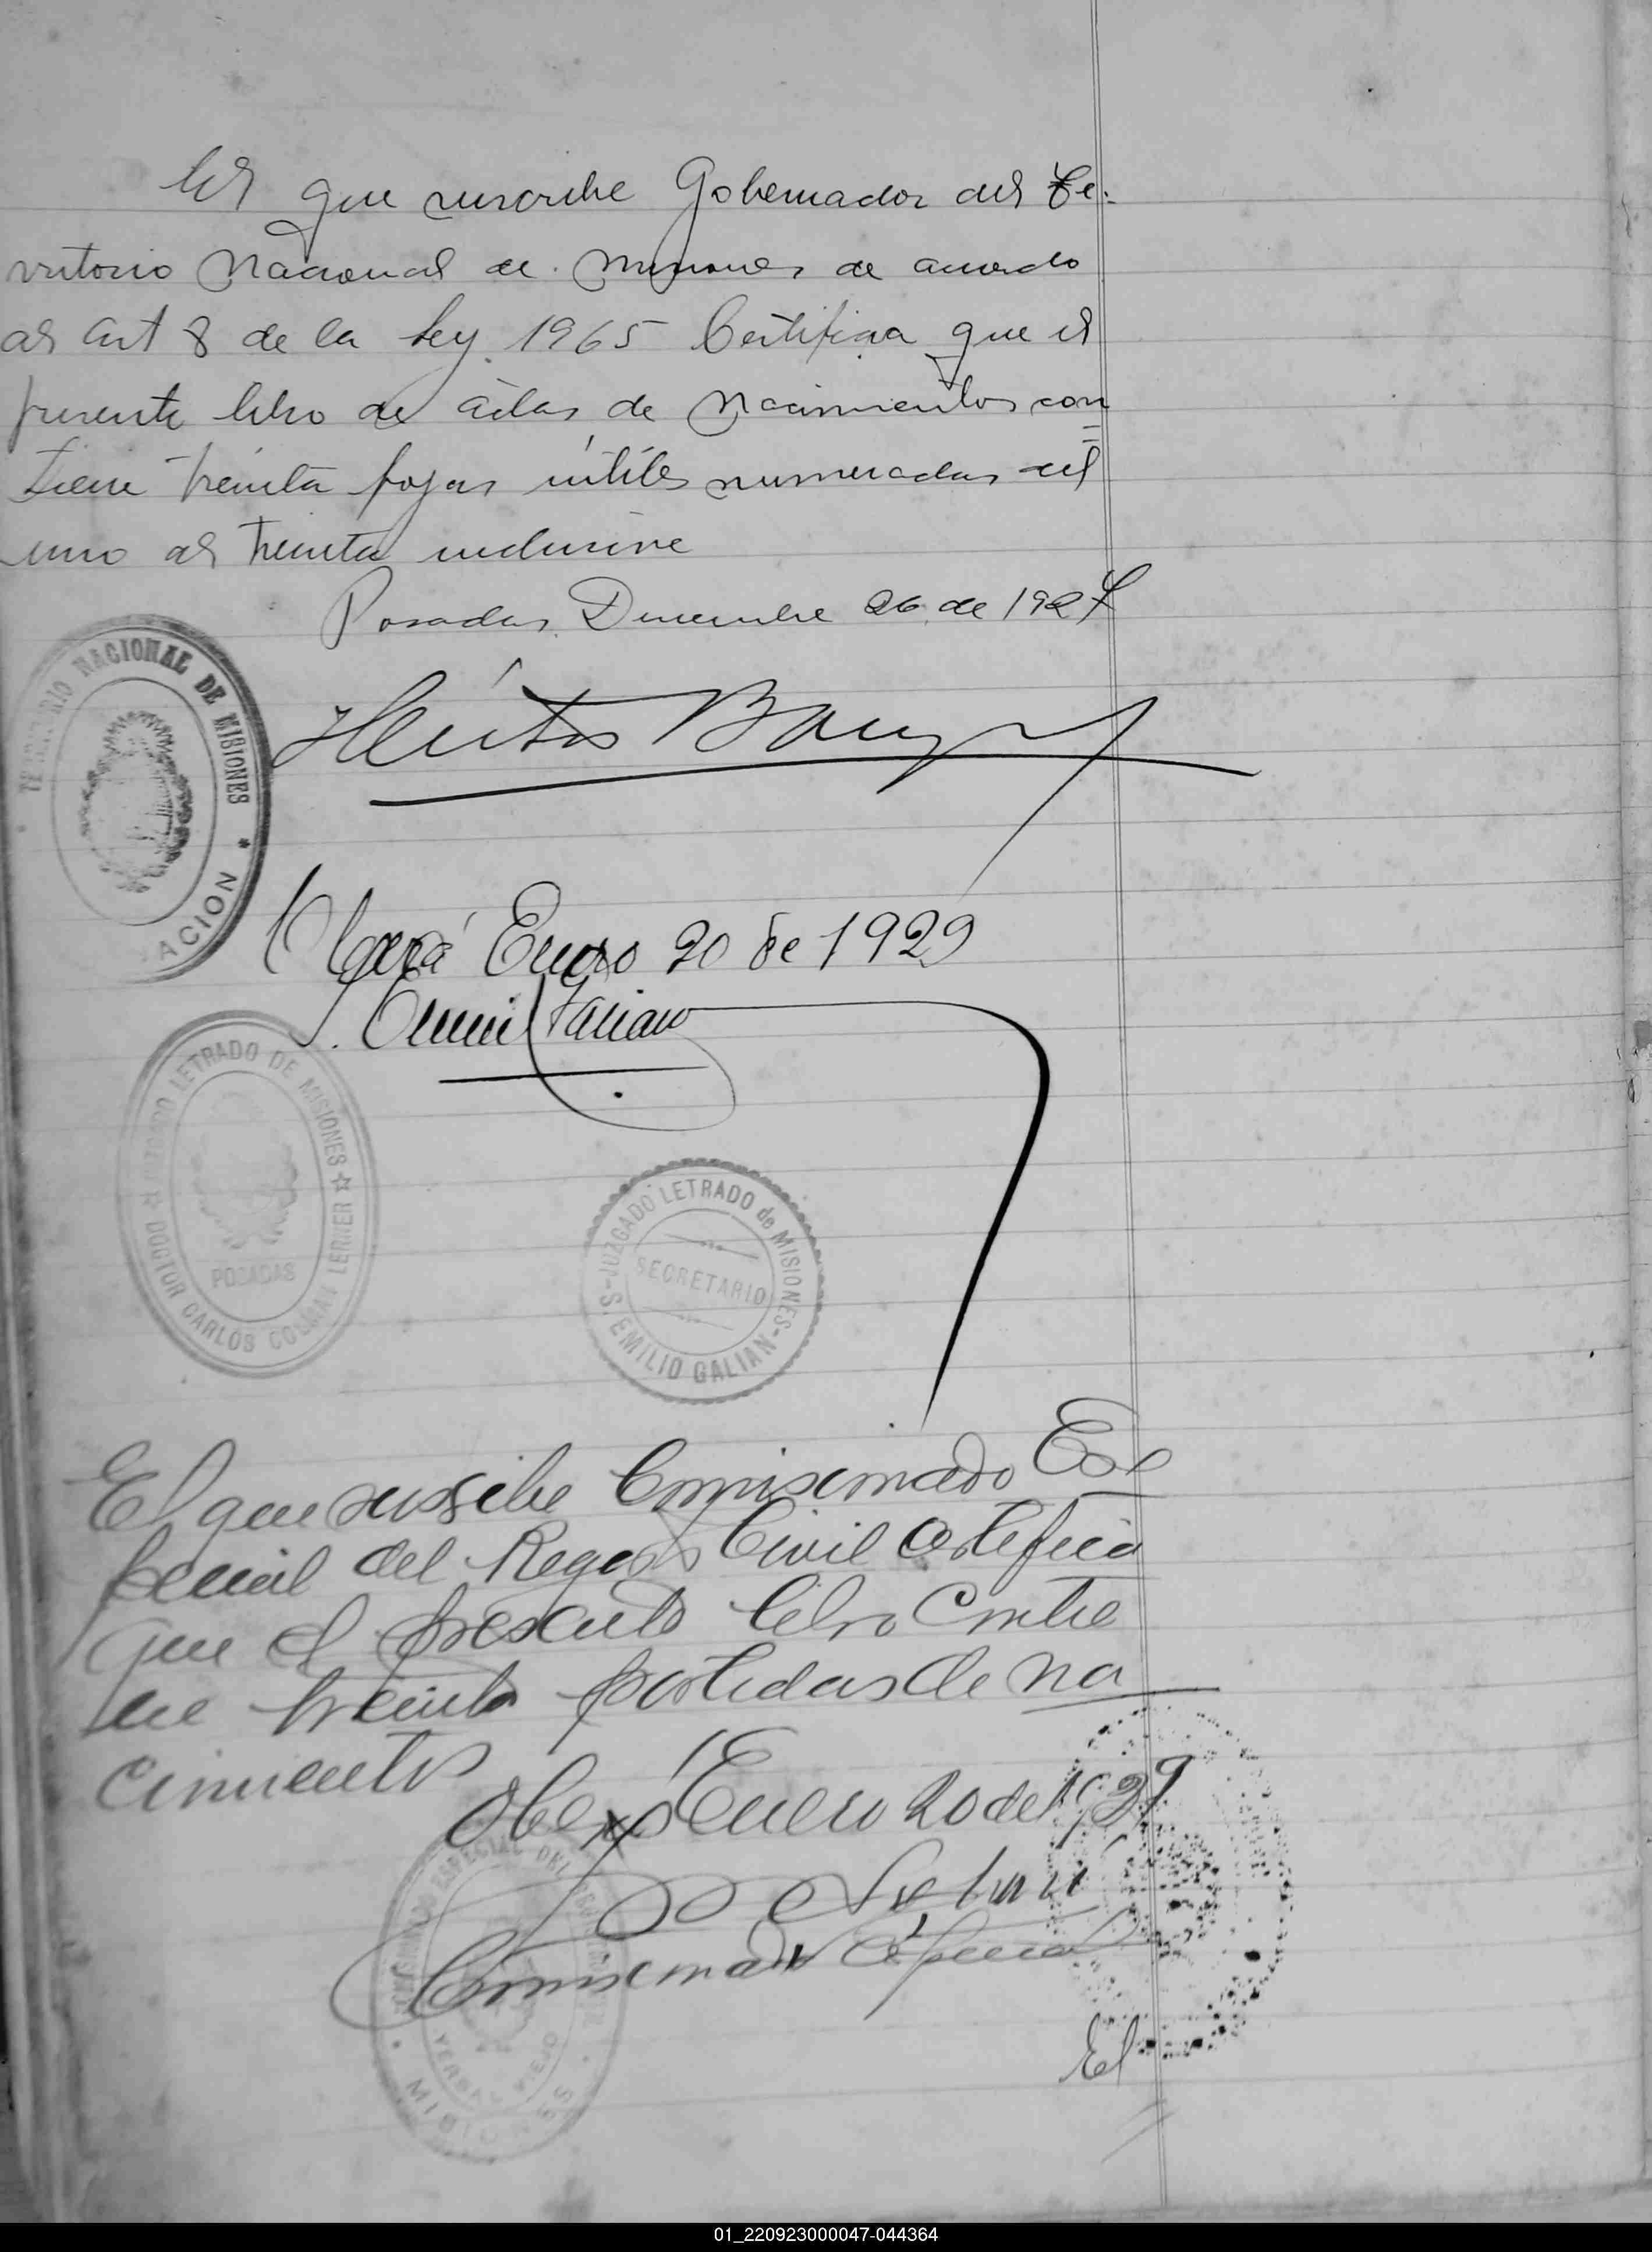 El que suscribe Gobernador del Te-
rritorio Nacional de Misiones de acuerdo
al Art 8 de la Ley 1565 Certifica que el
presente libro de actas de Nacimientos con
tiene treinta fojas útiles numeradas del
uno al treinta inclusive
Posadas, Diciembre 26 de 1927
Héctor Barreyro
TERRITORIO NACIONAL DE MISIONES
Enero 20 de 1929
S. Emilio Galian
JUZGADO LETRADO DE MISIONES
POSADAS
DOCTOR CARLOS LERNER
JUZGADO LETRADO de MISIONES
SECRETARIO
S. EMILIO GALIAN
El que suscribe Comisionado Es
pecial del Registro Civil Certifica
que el presente libro Contie
ne treinta partidas de na
cimientos
Obera Enero 20 de 1929
Comisionado Especial
ESPECIAL DEL
YERBAL VIEJO
MISIONES
El
01_220923000047-044364